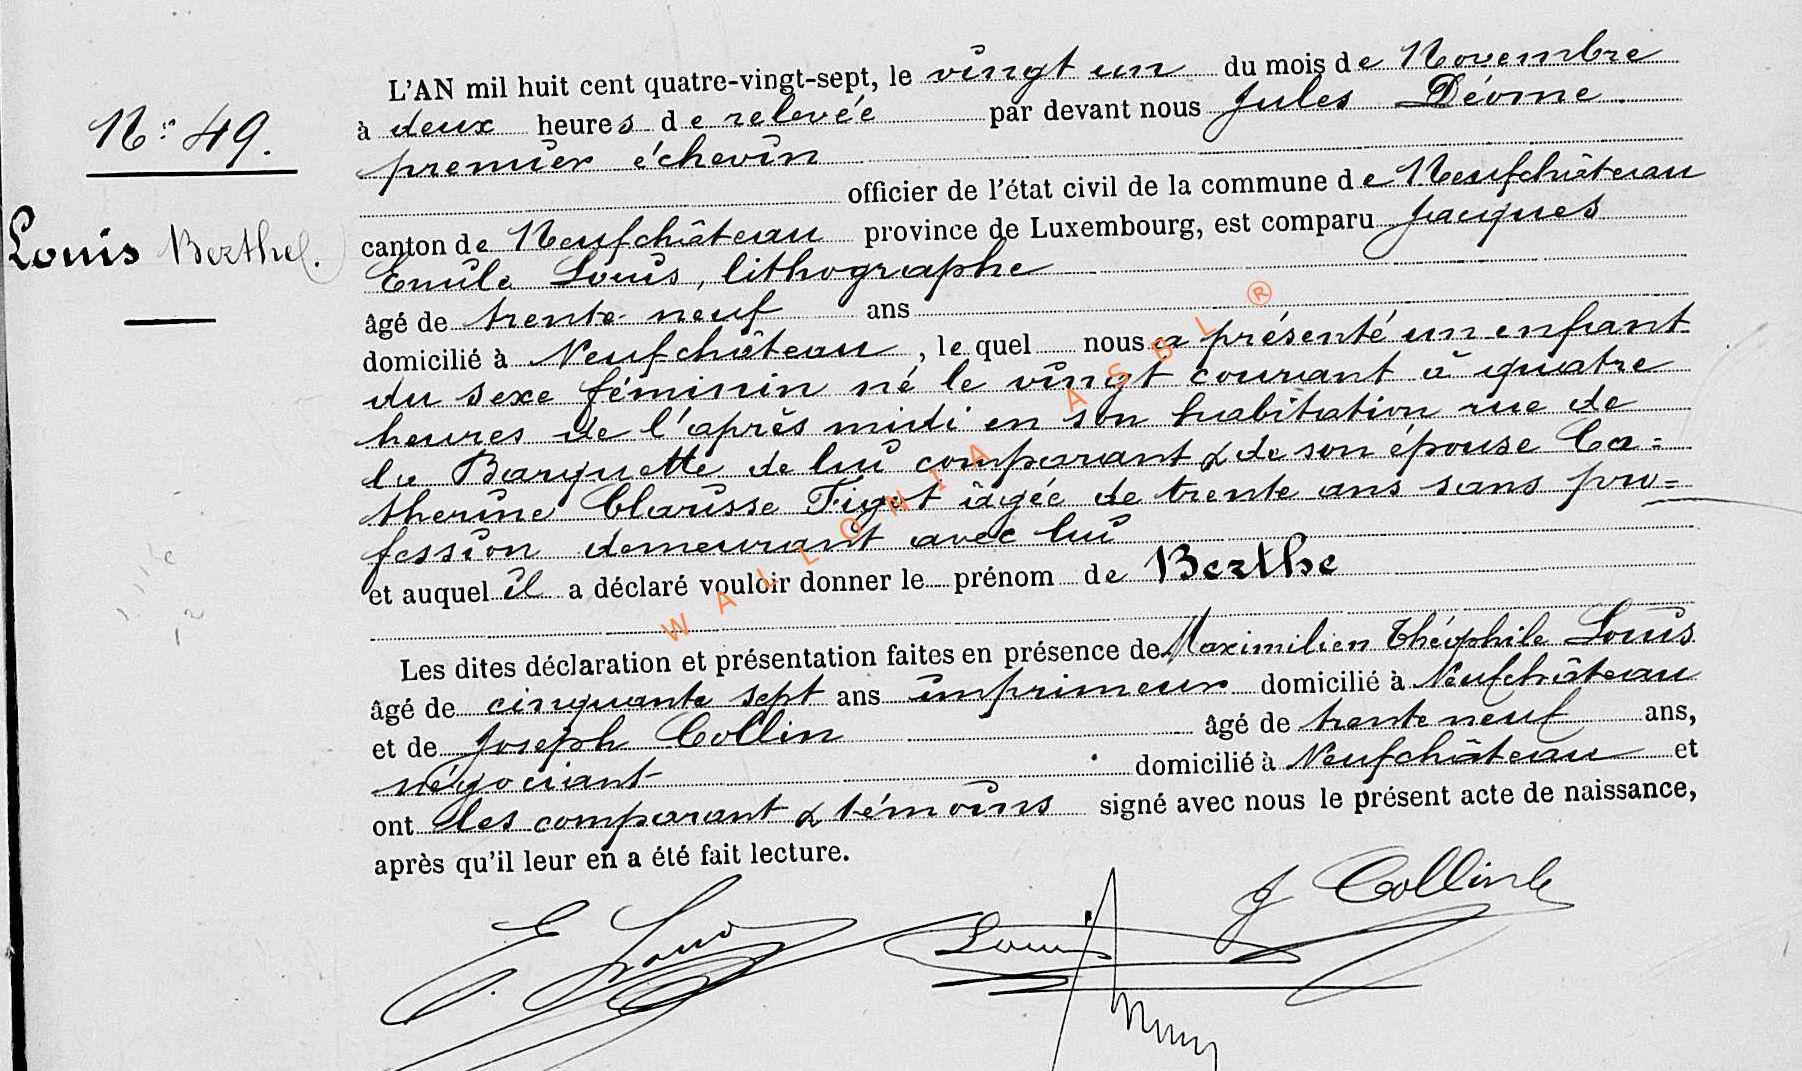 L'AN mil huit cent quatre-vingt-sept, le vingt un du mois de Novembre
à deux heures de relevée par devant nous Jules Déome
premier échevin
officier de l'état civil de la commune de Neufchâteau
canton de Neufchâteau province de Luxembourg, est comparu Jacques
Emile Louis, lithographe
âgé de trente-neuf ans
domicilié à Neufchâteau, le quel nous a présenté un enfant
du sexe féminin né le vingt courant à quatre
heures de l'après midi en son habitation rue de
la Barquette de lui comparant & de son épouse Ca=
therine Clarisse Figet âgée de trente ans sans pro=
fession demeurant avec lui
et auquel il a déclaré vouloir donner le prénom de Berthe
Les dites déclaration et présentation faites en présence de Maximilien Théophile Louis
âgé de cinquante sept ans imprimeur domicilié à Neufchâteau
et de Joseph Collin âgé de trente neuf ans,
négociant domicilié à Neufchâteau et
ont les comparant & témoins signé avec nous le présent acte de naissance,
après qu'il leur en a été fait lecture.
N° 49.
Louis Berthe.
E. Louis
Louis
J Collin
WALLONIA ASBL ®